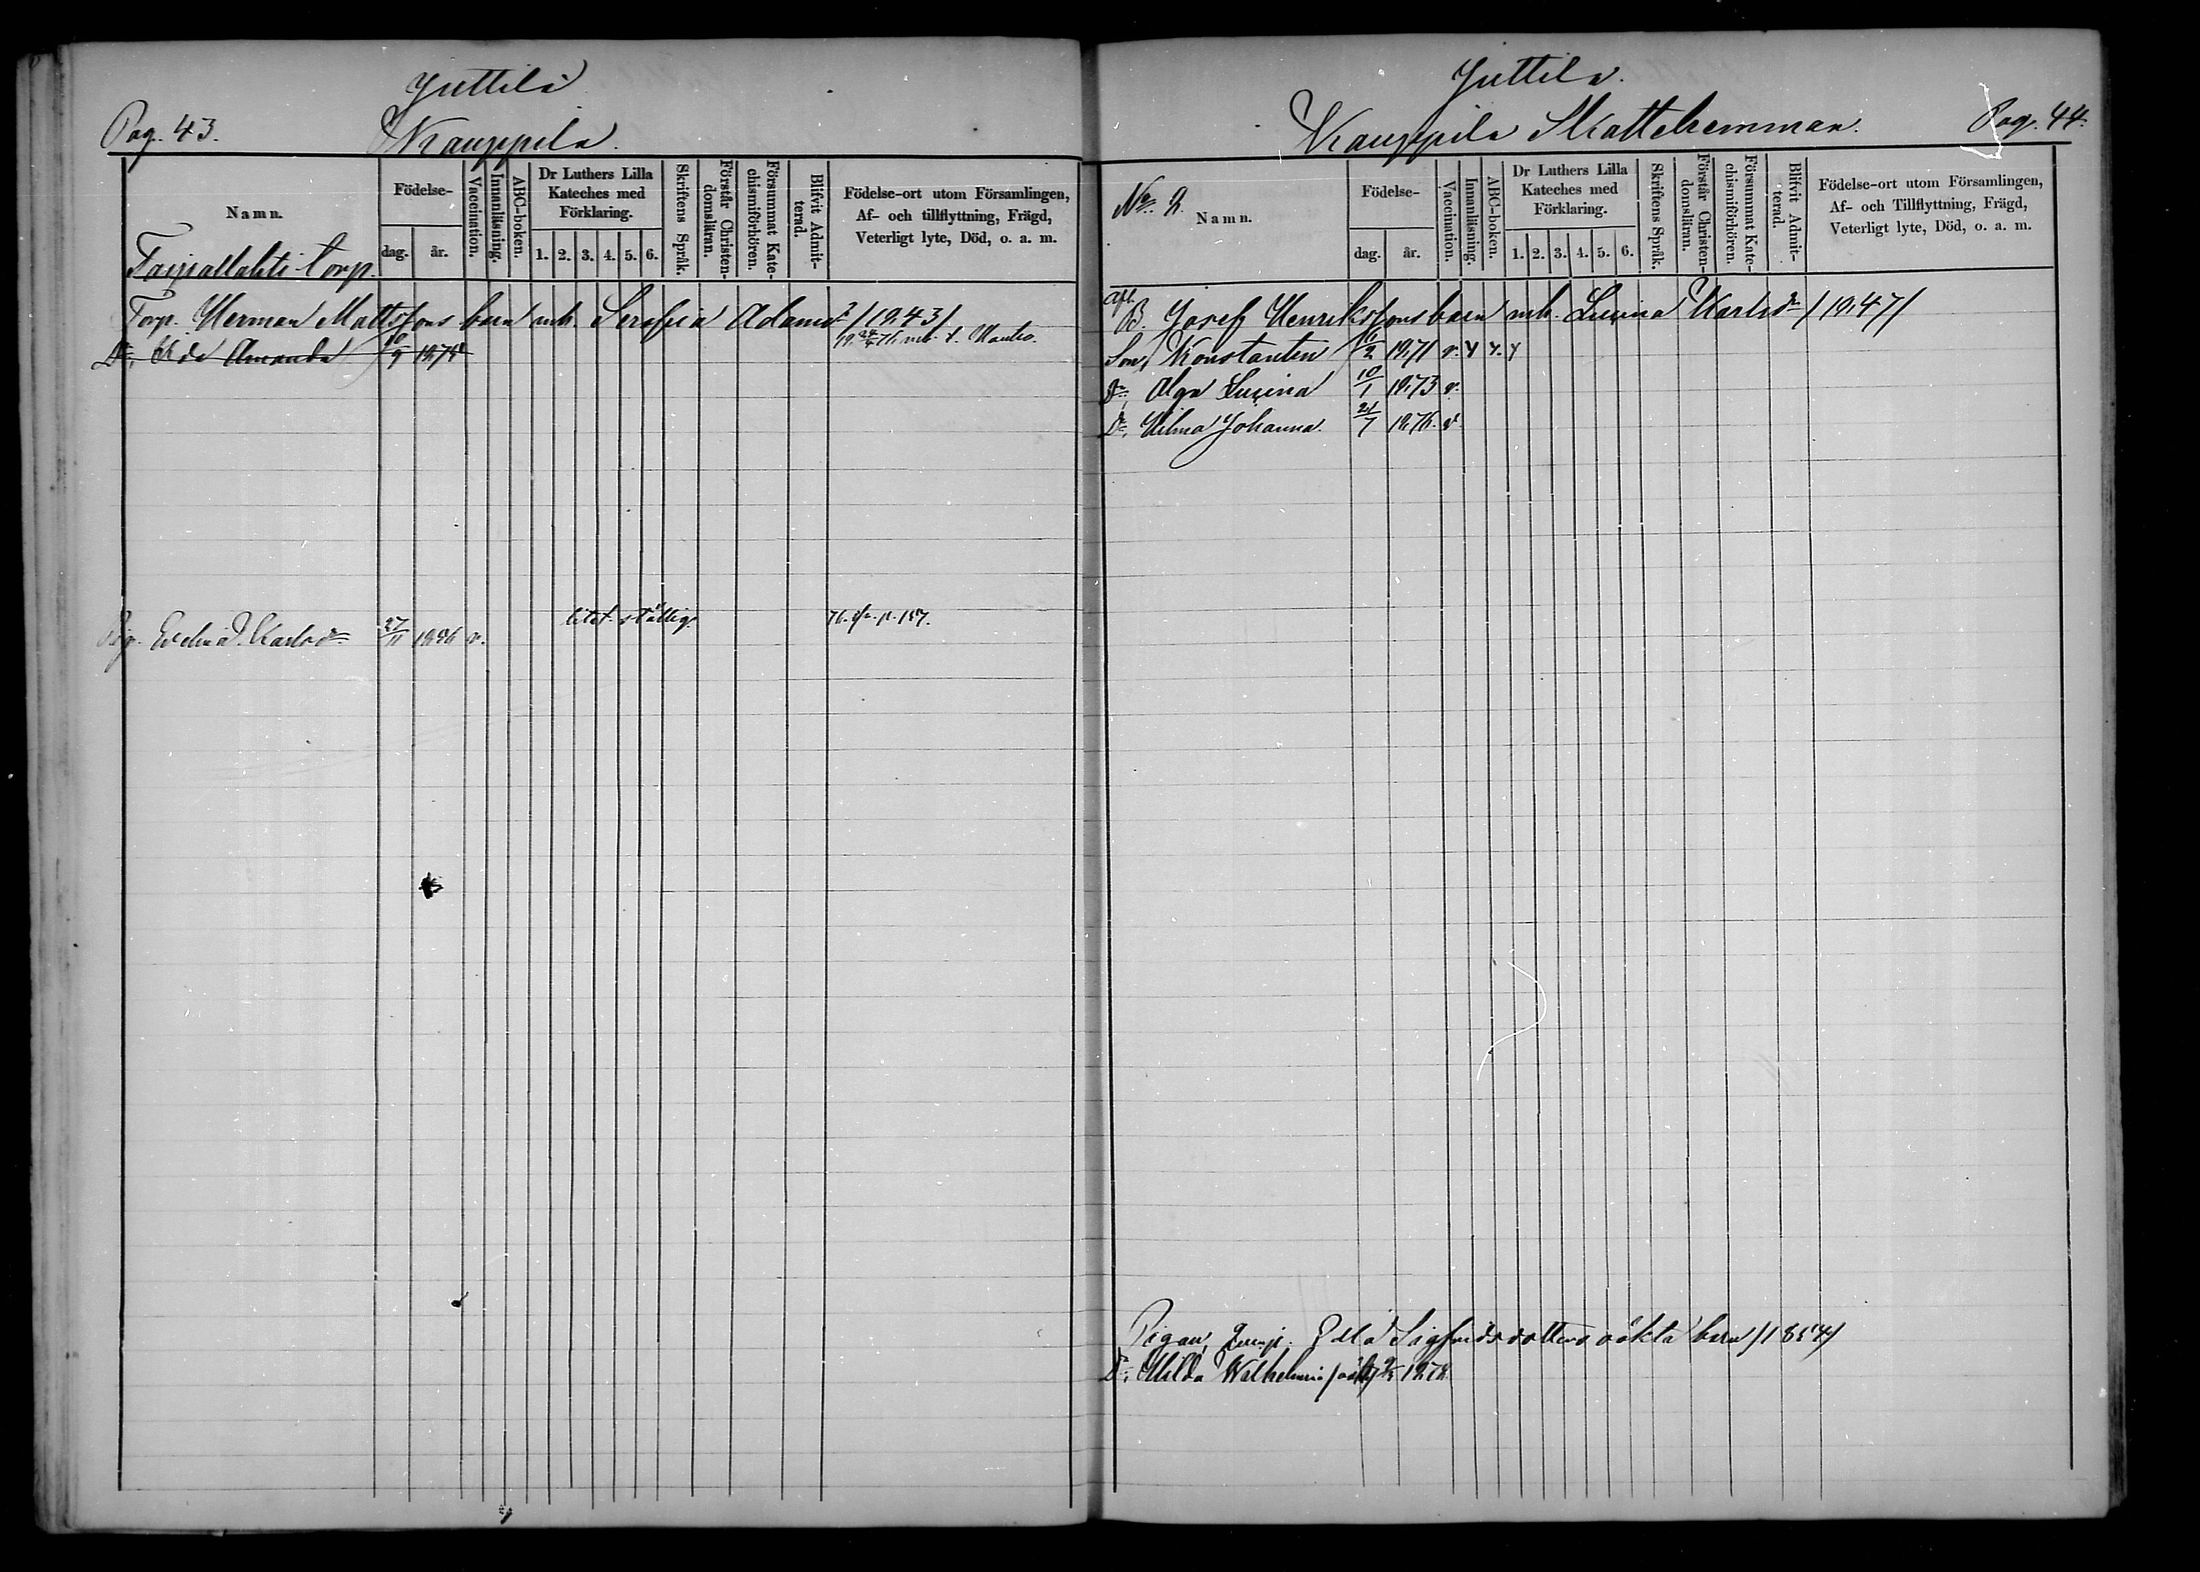 Juttila
Pag. 43.
Kauppila.
Namn.
Födelse-
dag. år.
Vaccination.
Innanläsning.
ABC-boken.
Dr Luthers Lilla Kateches med Förklaring.
1. 2. 3. 4. 5. 6.
Skriftens Språk.
Förstår Christendomsläran.
Försummat Katechismiförhören.
Blifvit Admitterad.
Födelse-ort utom Församlingen,
Af- och tillflyttning, Frägd,
Veterligt lyte, Död, o. a. m.
torp.
Torp. Herman Mattssons barn mh. Serafia Adamsdr /1843/
Dr, Ida Amanda
Karlsdr 27/11 v.
Juttila.
Kauppila Skattehemman.
Pag. 44.
No. 2.
Namn.
Födelse-
dag. år.
Vaccination.
Innanläsning.
ABC-boken.
Dr Luthers Lilla Kateches med Förklaring.
1. 2. 3. 4. 5. 6.
Skriftens Språk.
Förstår Christendomsläran.
Försummat Katechismiförhören.
Blifvit Admitterad.
Födelse-ort utom Församlingen,
Af- och Tillflyttning, Frägd,
Veterligt lyte, Död, o. a. m.
B. Josef Henrikssons barn mh. Lusina Karlsdr /1847/
Son, Konstantin 1/2 1871 v. y y. y
Dr, Olga Lusina 10/1 1873 v.
Dr, Hilma Johanna. 24/7 1876. v
Pigan, Sigfridsdotters oäkta barn /1854/
Dr, Hilda Wilhelmina 1878